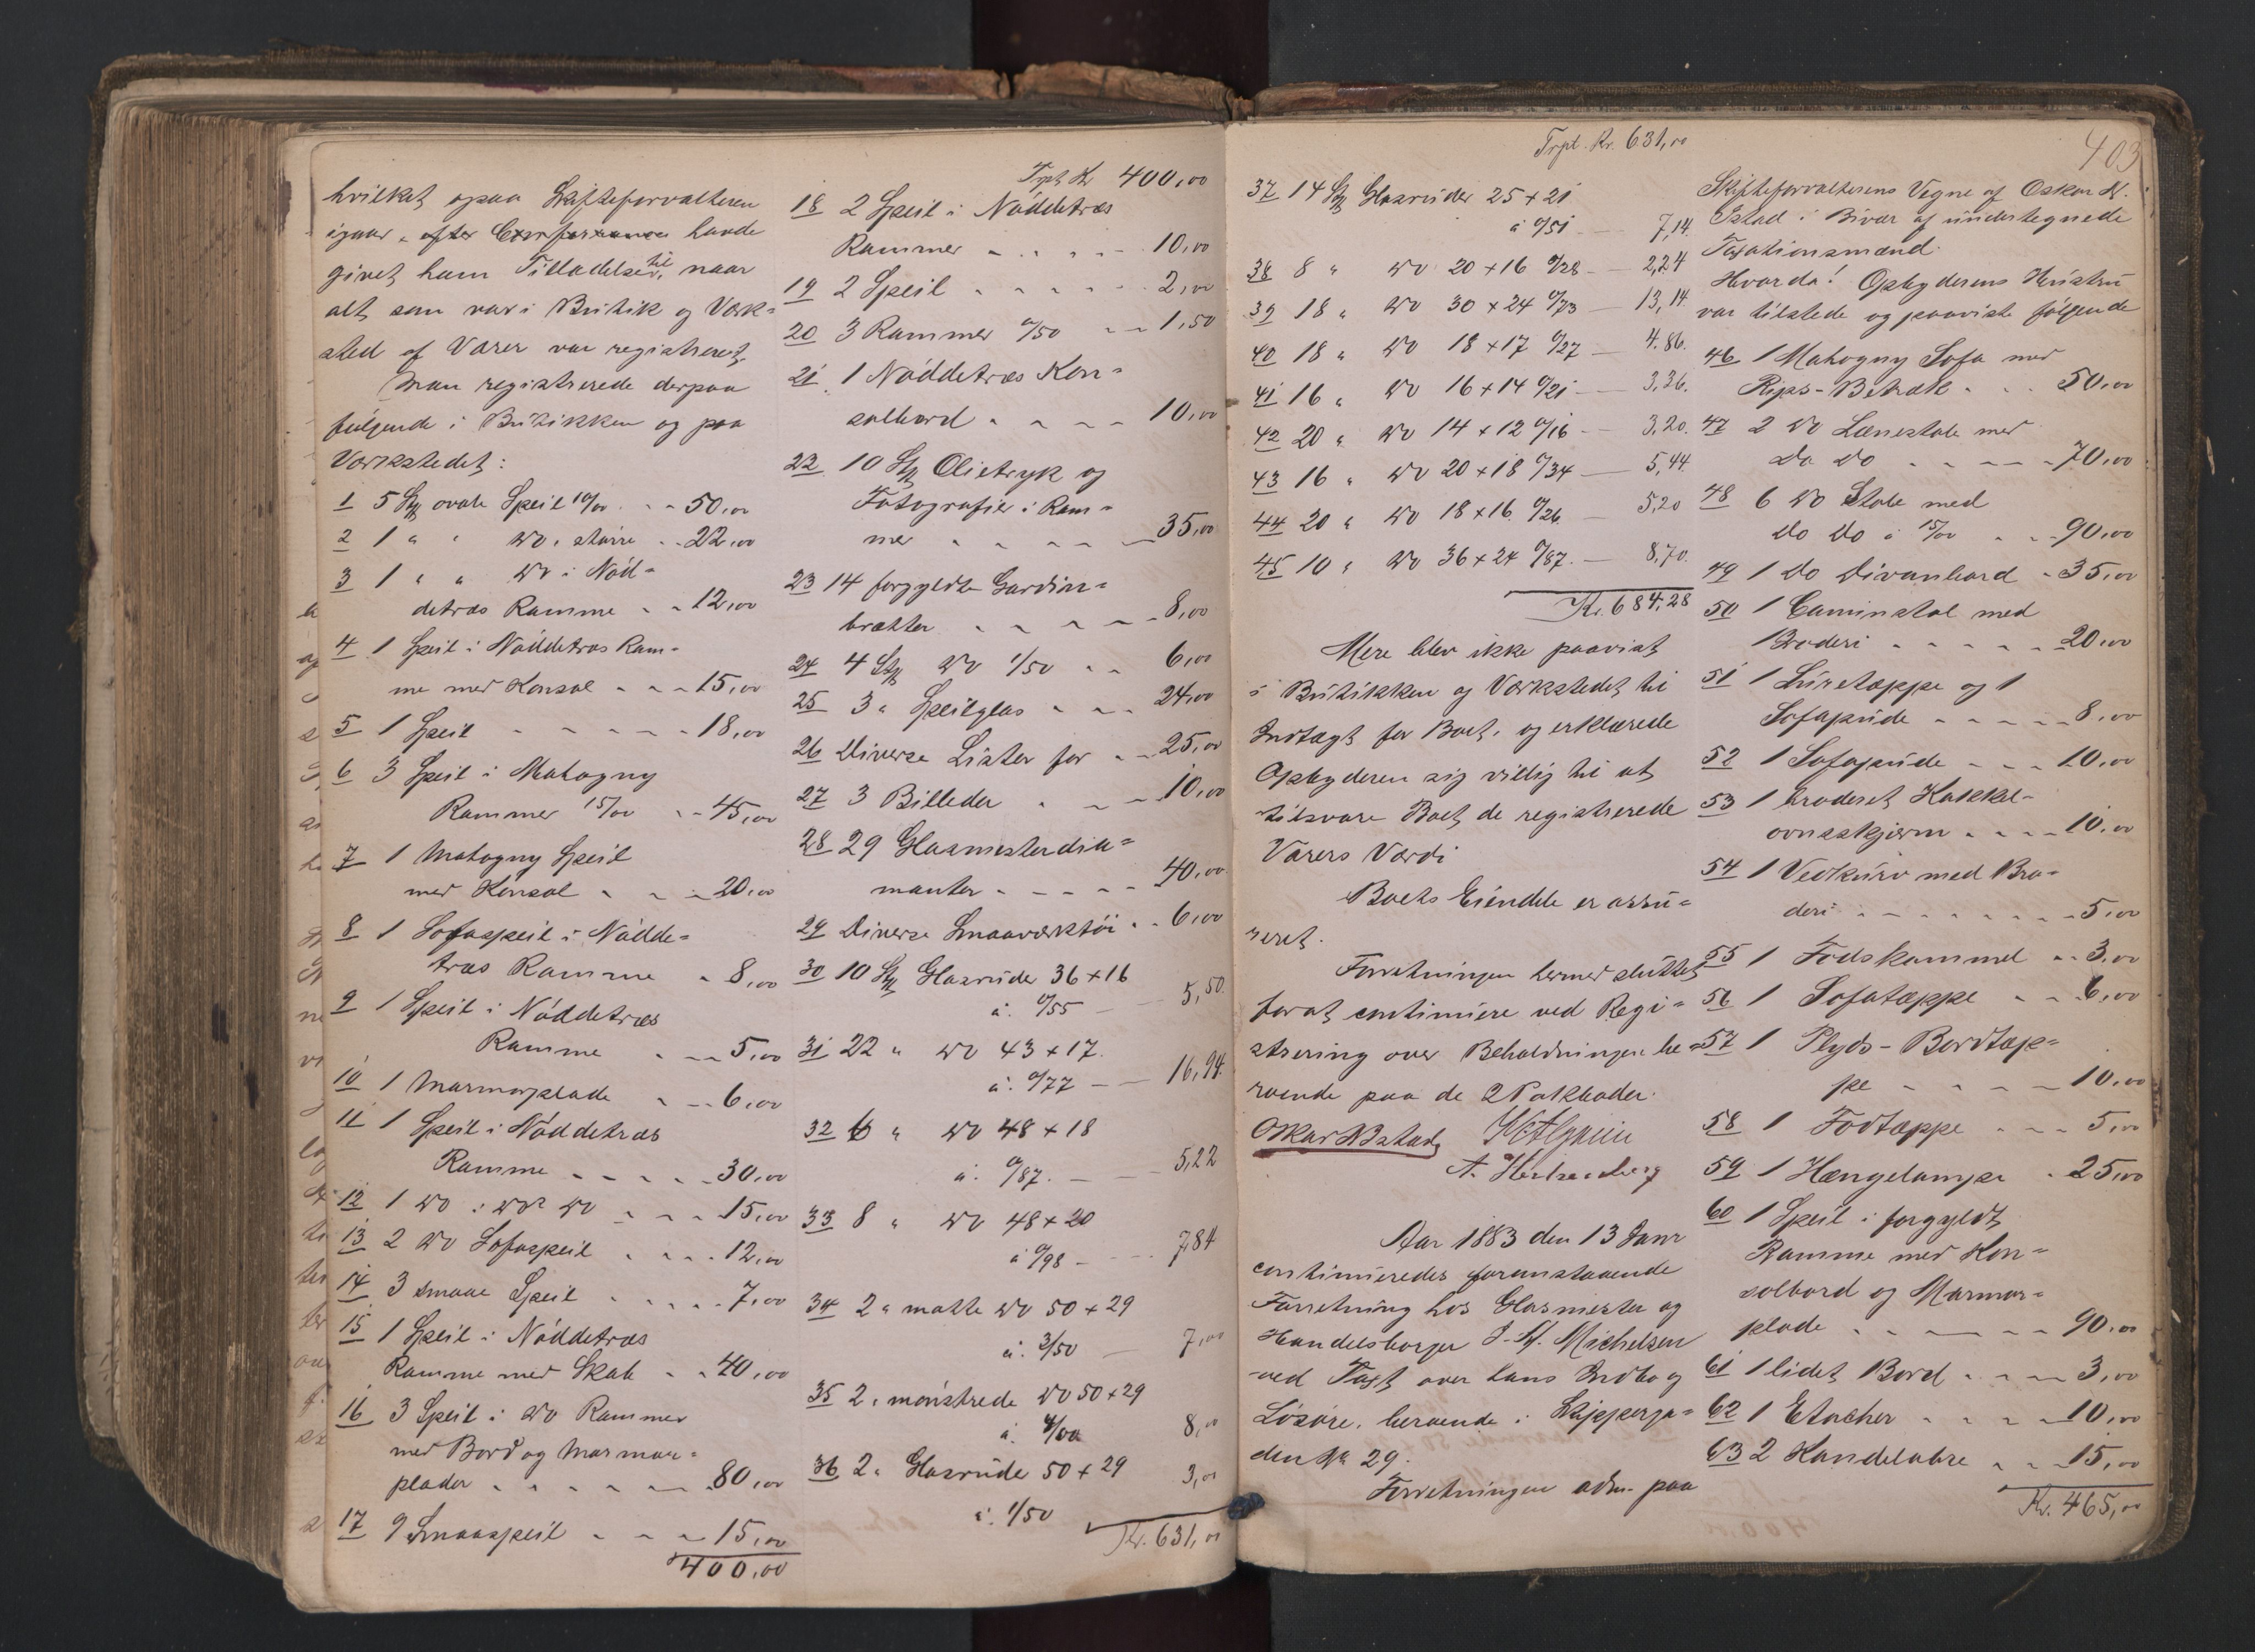 hvilket ogsaa Skifteforvalteren
igaar, efter Conference havde
givet ham Tilladelse til, naar
alt som var i Butik og Værk=
sted af Varer var registreret.
Man registrerede derpaa
følgende i Butikken og paa
Værkstedet:
1 5 Stk ovale Speil 10/00 - - 50,00
2 1 " " Do, større - - 22,00
3 1 " " Do i Nød=
detræs Ramme - - 12,00
4 1 Speil i Nøddetræs Ram-
me med Konsol - - - 15,00
5 1 Speil - - - - - 18,00
6 3 Speil i Mahogny
Rammer 15/00 - - 45,00
7 1 Mahogny Speil
med Konsol - - - 20,00
8 1 Sofaspeil i Nødde=
træs Ramme - 8,00
9 1 Speil i Nøddetræs
Ramme - - - 5,00
10 1 Marmorplade - - - 6,00
11 1 Speil i Nøddetræs
Ramme - - - - - 30,00
12 1 Do i Do Do - - - 15,00
13 2 Do Sofaspeil - - - - 12,00
14 3 smaae Speil - - - - - 7,00
15 1 Speil i Nøddetræs
Ramme med Skab - - 40,00
16 3 Speil i Do Rammer
med Bord og Marmor=
plader - - - - - - 80,00
17 9 Smaaspeil - - - 15,00
400,00
Trpt Kr 400,00
18 2 Speil i Nøddetræs
Rammer - - - - - 10,00
19 2 Speil - - - - - - 2,00
20 3 Rammer 0/50 - - 1,50
21 1 Nøddetræs Kon=
solbord - - - - 10,00
22 10 Stk Olietryk og
Fotografier i Ram=
mer - - - - - 35,00
23 14 forgyldte Gardin=
brætter - - - - - 8,00
24 4 Stk Do 1/50 - - 6,00
25 3 " Speilglas - - - 24,00
26 Diverse Lister for - - 25,00
27 3 Billeder - - - 10,00
28 29 Glasmesterdia=
manter - - - - - 40,00
29 Diverse Smaaværktøi - - 6,00
30 10 Stk Glasruder 36 + 16
à. 0/55 - - 5,50.
31 22 " Do 43 + 17.
à. 0/77 - - 16,94.
32 6 " Do 48 + 18
à. 0/87. - - 5,22
33 8 " Do 48 + 20
à 0/98 - - - 7,84
34 2 " matte Do 50 + 29
à. 3/50 - 7,00
35 2 " mønstrede Do 50 + 29
à. 4/00 8,00
36 2 " Glasrude 50 + 29 3,00
à. 1/50
Kr. 631,00
Trpt. Kr. 631,00
37 14 Stk Glasruder 25 + 21
à 0/51 - 7,14.
38 8 " Do 20 + 16 0/28 - 2,24
39 18 " Do 30 + 24 0/73 - 13,14
40 18 " Do 18 + 17 0/27 - 4.86.
41 16 " Do 16 + 14 0/21 - 3,36.
42 20 " Do 14 + 12 0/16 - 3,20.
43 16 " Do 20 + 18 0/34 - 5,44.
44 20 " Do 18 + 16. 0/26. - 5,20
45 10 " Do 36 + 24 0/87. - 8,70.
Kr. 684,28
Mere blev ikke paavist
i Butikken og Værkstedet til
Indtægt for Boet, og erklærede
Opbyderen sig villig til at
tilsvare Boet de registrerede
Varers Værdi
Boets Eiendele er assu=
reret.
Forretningen hermed sluttet
forat continuere ved Regi=
strering over Beholdningen be=
roende paa de 2 Pakboder.
Oskar Østad
Aar 1883 den 13 Janr
continueredes foranstaaende
Forretning hos Glasmester og
Handelsborger J. M. Michelsen
ved Taxt over hans Indbo og
Løsøre, beroende i Skipperga=
den No 29.
Forretningen adm. paa
403
Skifteforvalterens Vegne af Oskar N.
Østad i Bivær af undertegnede
Taxationsmænd.
Hvorda! Opbyderens Hustru
var tilstede og paaviste følgende
46 1 Mahogny Sofa med
Rips-Betræk - - - 50,00
47 2 Do Lænestole med
Do Do - - - - - 70,00
48 6 Do Stole med
Do Do à 15/00 - - - 90,00
49 1 Do Divanbord - 35,00
50 1 Caminstol med
Broderi - - - - - - 20,00
51 1 Luretæppe og 1
Sofapude - - - - - 8,00
52 1 Sofapude - - - 10,00
53 1 broderet Kakkel-
ovnsskjerm - - - - 10,00
54 1 Vedkurv med Bro=
deri - - - - - - - - 5,00
55 1 Fodskammel - - 3,00
56 1 Sofatæppe - - 6,00
57 1 Plyds-Bordtæp=
pe - - - - - 10,00
58 1 Fodtæppe - - - 5,00
59 1 Hængelampe - 25,00
60 1 Speil i forgyldt
Ramme med Kon=
solbord og Marmor=
plade - - - - - - 90,00
61 1 lidet Bord - - - - 3,00
62 1 Etacher - - - - 10,00
63 2 Kandelabre - - - 15,00
Kr. 465,00